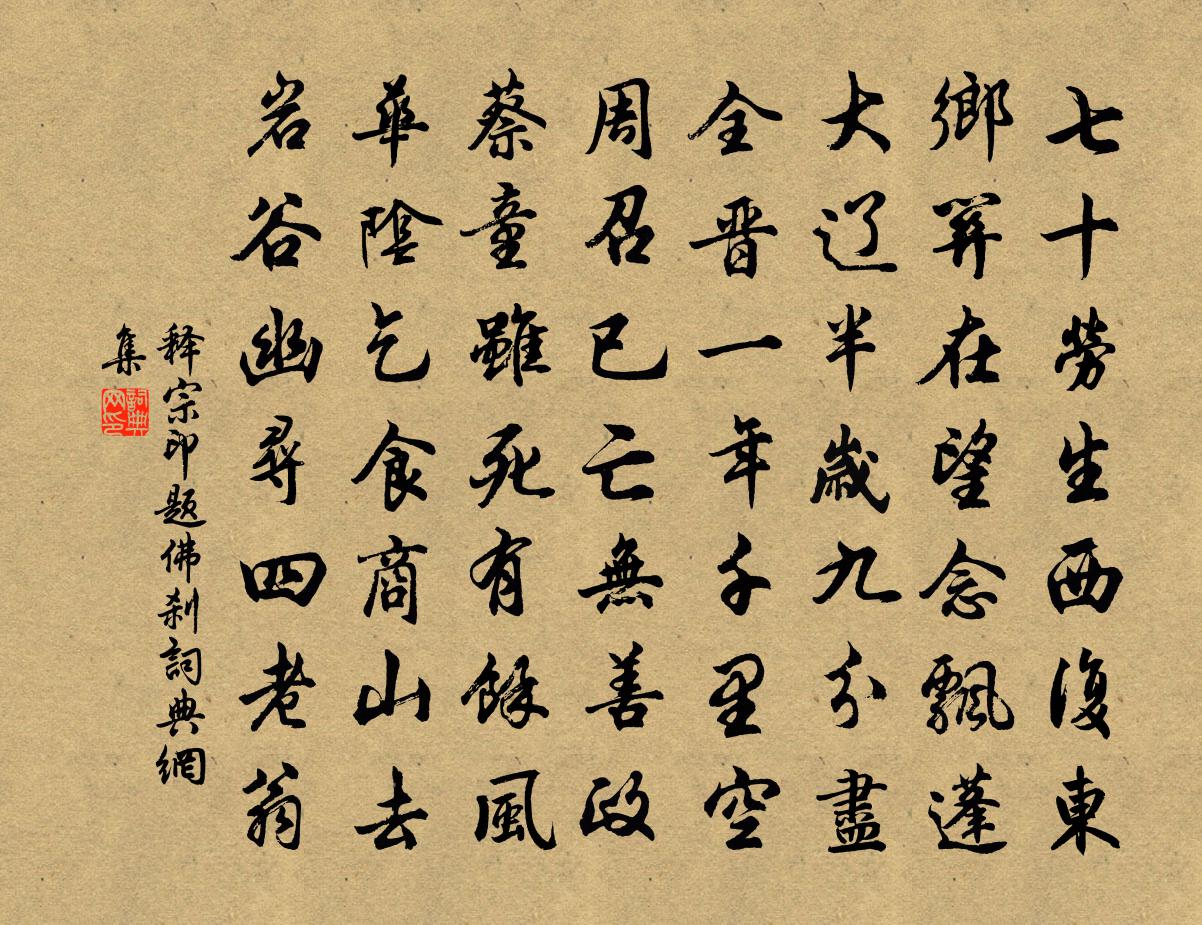 七十勞生西復東
鄉關在望念飄蓬
大辽半歲九分盡
全晋一年千里空
周召已亡無善政
蔡童雖死有餘風
華陰乞食商山去
岩谷幽尋四老翁
释宗印题佛刹詞典網
集
詞典网印